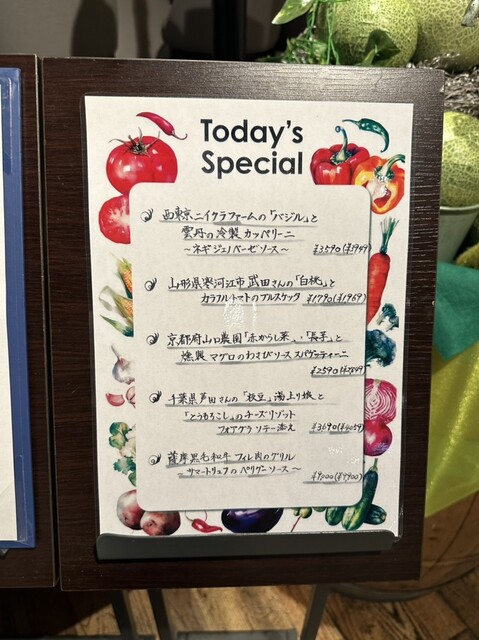 Today's
Special
西東京ニイクラファームの「バジル」と
雲丹の冷製カッペリーニ
~ネギジェノベーゼソース~ ¥3590(¥3949)
山形県寒河江市武田さんの「白桃」と
カラフルトマトのブルスケッタ ¥1790(¥1969)
京都府山口農園「赤からし菜」・「長芋」と
燻製マグロのわさびソーススパゲッティーニ
¥2590(¥2849)
千葉県芦田さんの「枝豆」湯上り娘と
「とうもろこし」のチーズリゾット
フォアグラソテー添え ¥3690(¥4059)
薩摩黒毛和牛フィレ肉のグリル
~サマートリュフのペリグーソース~ ¥9000(¥9900)